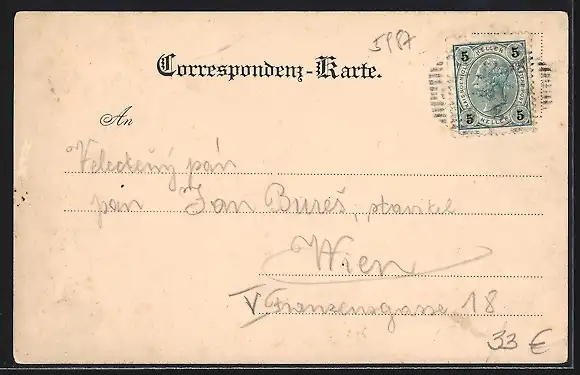 5987
Correspondenz-Karte.
5 HELLER 5
5 HELLER 5
An
Veledený pán
pan Jan Bureš, stavitel
Wien
V Franzensgasse 18
33 €